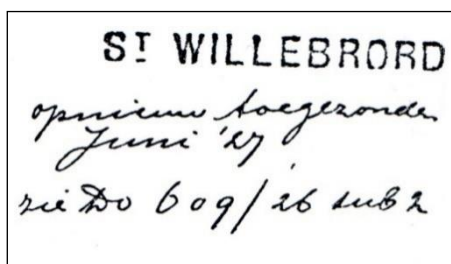 ST WILLEBRORD
opnieuw toegezonden
Juni '27
zie Do 609/26 sub 2